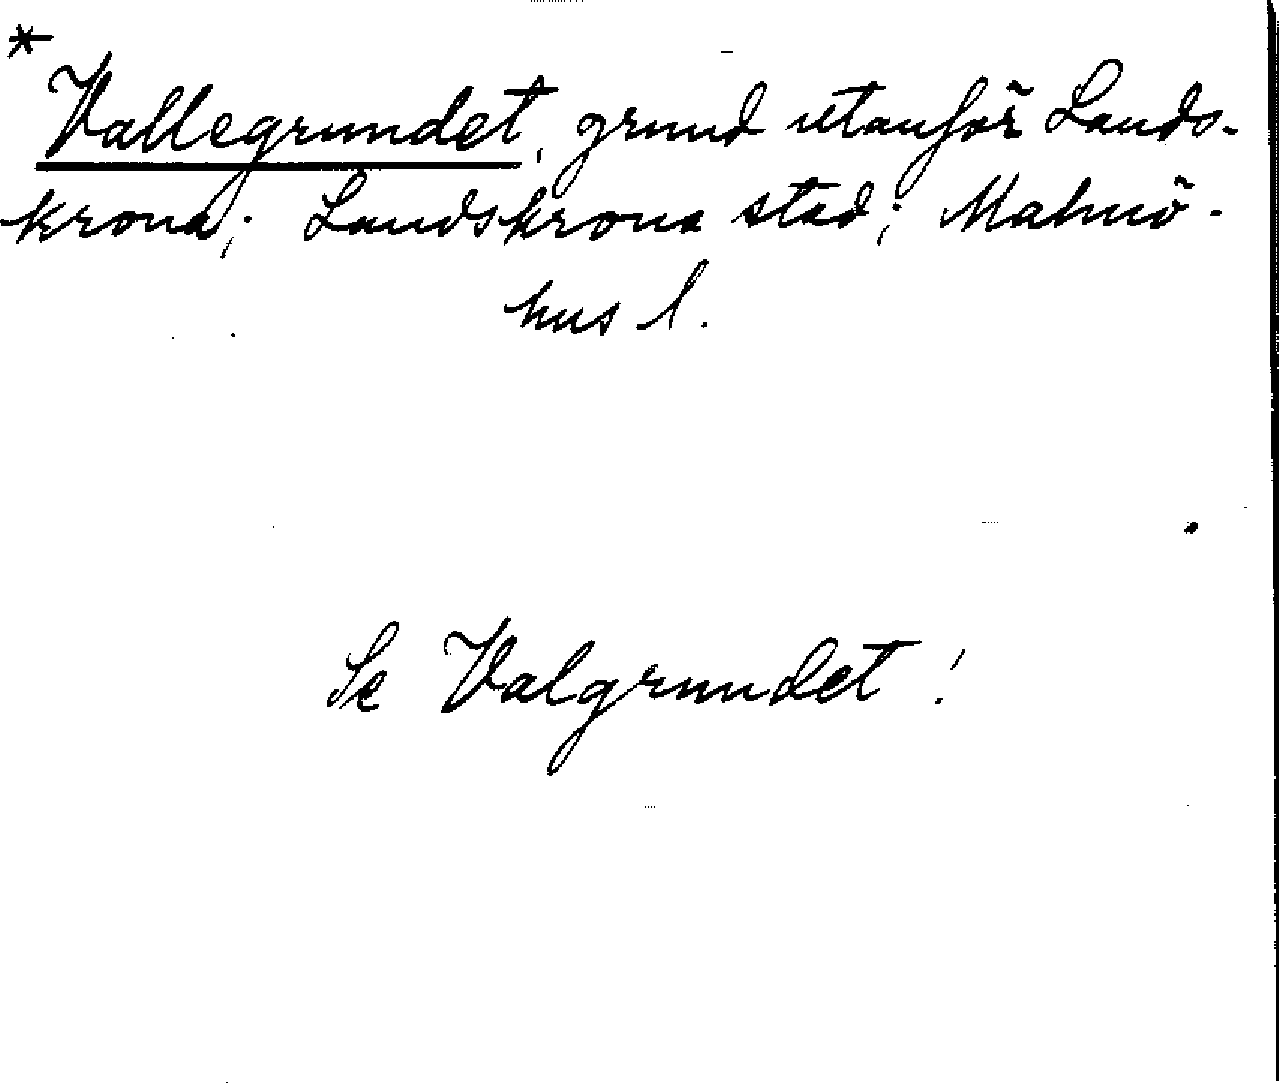 * Vallegrundet, grund utanför Lands-
krona; Landskrona stad; Malmö-
hus l.
Se Valgrundet!